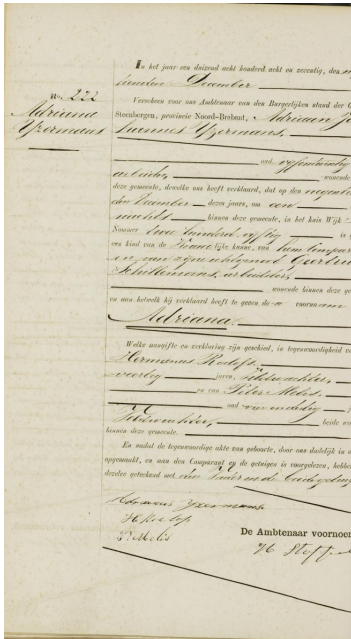 In het jaar een duizend acht honderd acht en zeventig, den
tienden December
No. 222
Adriana
Yzermans
Verscheen voor ons Ambtenaar van den Burgerlijken stand der
Steenbergen, provincie Noord-Brabant, Adriaan
Yzermans,
oud vyfentwintig
arbeider, wonende
deze gemeente, dewelke ons heeft verklaard, dat op den negen
den December dezes jaars, om een
nachts binnen deze gemeente, in het huis Wijk
Nommer twee honderd vyftig is
een kind van de Vrouwelijke kunne, van hem Comparant
en van zyne echtgenoot
arbeidster,
wonende binnen deze
en aan hetwelk hij verklaard heeft te geven de voornaam
Adriana.
Welke aangifte en verklaring zijn geschied, in tegenwoordigheid
Hermanus
veertig jaren, Veldwachter,
en van Peter Melis,
oud
Veldwachter, beide
binnen deze gemeente.
En nadat de tegenwoordige akte van geboorte, door ons dadelijk in
opgemaakt, en aan den Comparant en de getuigen is voorgelezen,
dezelve geteekend met den Vader en de beide getuigen
Yzermans
P. Melis
De Ambtenaar voornoem